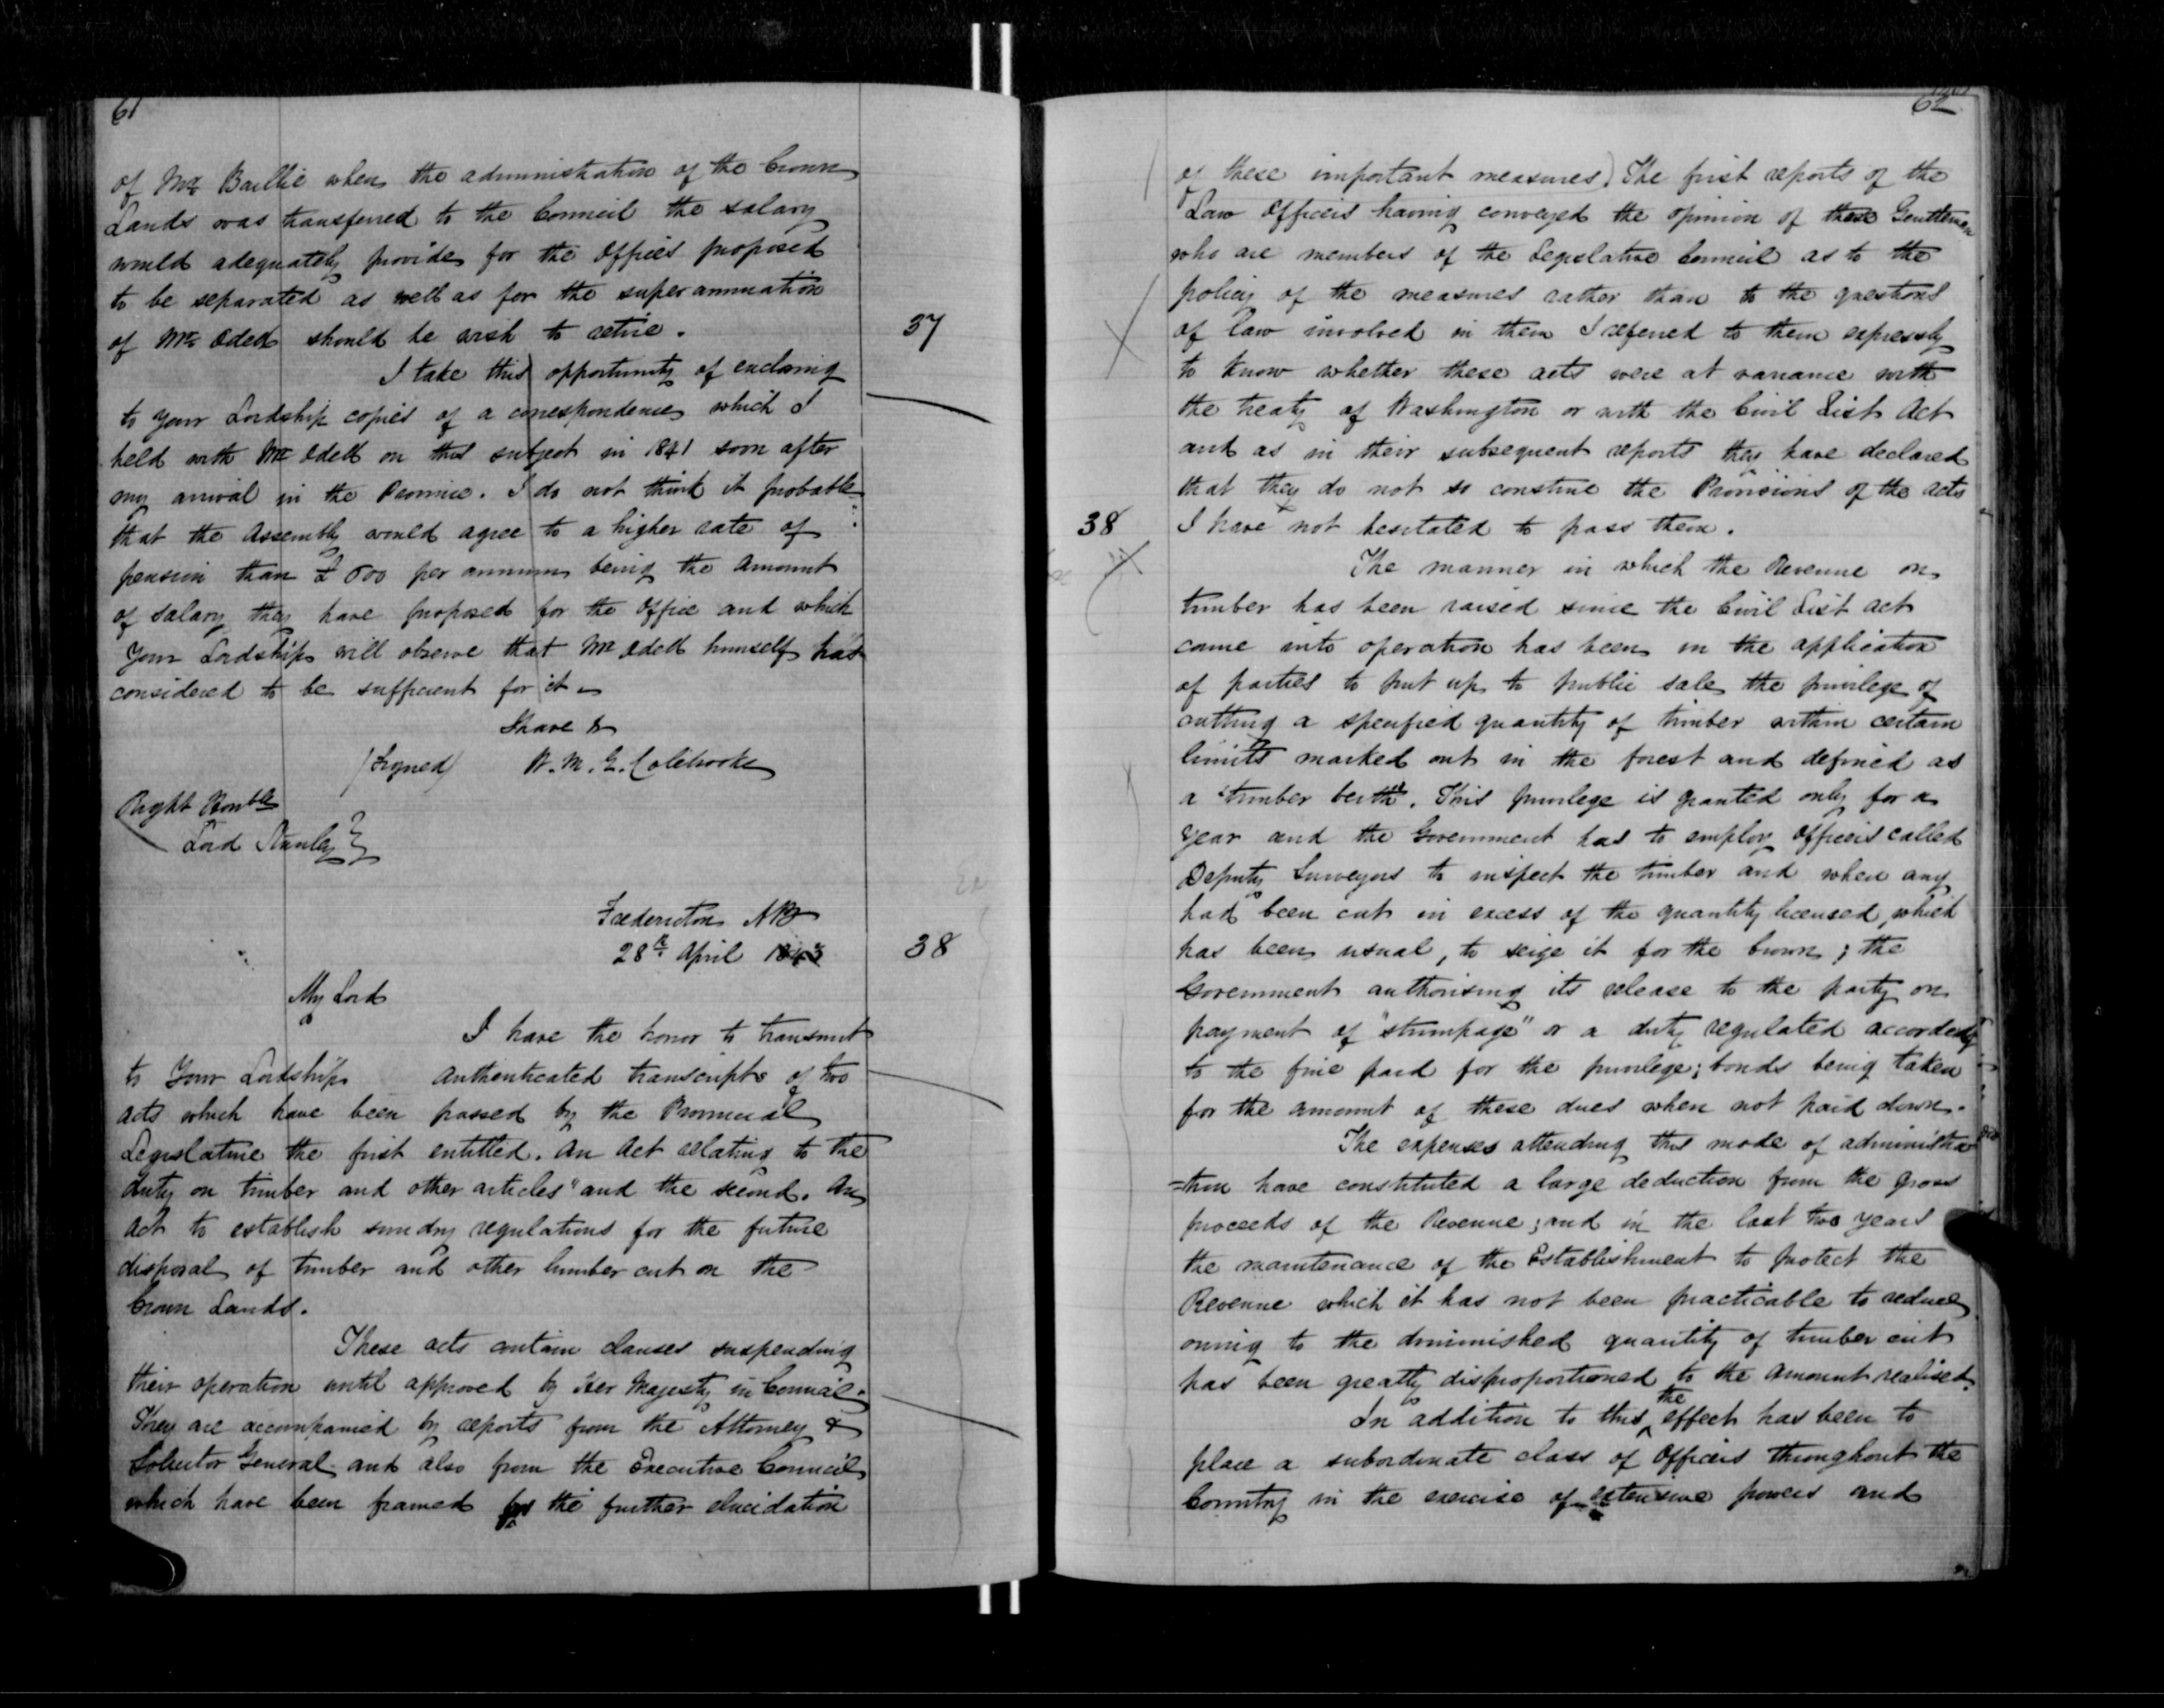 61
of Mr Baillie when the administration of the Crown
Lands was transferred to the Council the salary
would adequately provide for the Offices proposed
to be separated as well as for the superannuation
of Mr Odell should he wish to retire.
37
I take this opportunity of enclosing
to your Lordship copies of a correspondence which I
held with Mr Odell on this subject in 1841 soon after
my arrival in the Province. I do not think it probable
that the Assembly would agree to a higher rate of
pension than £ 600 per annum being the amount
of salary they have proposed for the office and which
Your Lordship will observe that Mr Odell himself has
considered to be sufficient for it
I have &
(Signed) W. M. G. Colebrooke
Right Honble
Lord Stanley
Fredericton NB
28th April 1843
38
My Lord
I have the honor to transmit
to Your Lordship authenticated transcripts of two
acts which have been passed by the Provincial
Legislature the first entitled. An Act relating to the
duty on timber and other articles" and the second. An
act to establish sundry regulations for the future
disposal of timber and other lumber cut on the
Crown Lands.
These acts contain clauses suspending
their operation until approved by Her Majesty in Council.
They are accompanied by reports from the Attorney &
Solicitor General and also from the Executive Council
which have been framed for the further elucidation
62
of these important measures) The first reports of the
Law Officers having conveyed the opinion of these Gentlemen
who are members of the Legislative Council as to the
policy of the measures rather than to the questions
of law involved in them I referred to them expressly
to know whether these acts were at variance with
the treaty of Washington or with the Civil List Act
and as in their subsequent reports they have declared
that they do not so construe the Provisions of the acts
38
I have not hesitated to pass them.
The manner in which the Revenue on
timber has been raised since the Civil List act
came into operation has been on the application
of parties to put up to public sale the privilege of
cutting a specified quantity of timber within certain
limits marked out in the forest and defined as
a "timber berth". This privilege is granted only for a
year and the Government has to employ officers called
Deputy Surveyors to inspect the timber and when any
had been cut in excess of the quantity licensed, which
has been usual, to seize it for the Crown; the
Government authorising its release to the party on
payment of "stumpage" or a duty regulated according
to the fine paid for the privilege; bonds being taken
for the amount of these dues when not paid down.
The expenses attending this mode of administra
=tion have constituted a large deduction from the gross
proceeds of the Revenue; and in the last two years
the maintenance of the Establishment to protect the
Revenue which it has not been practicable to reduce
owing to the diminished quantity of timber cut
has been greatly disproportioned to the amount realised.
In addition to this the effect has been to
place a subordinate class of Officers throughout the
Country in the exercise of extensive powers and